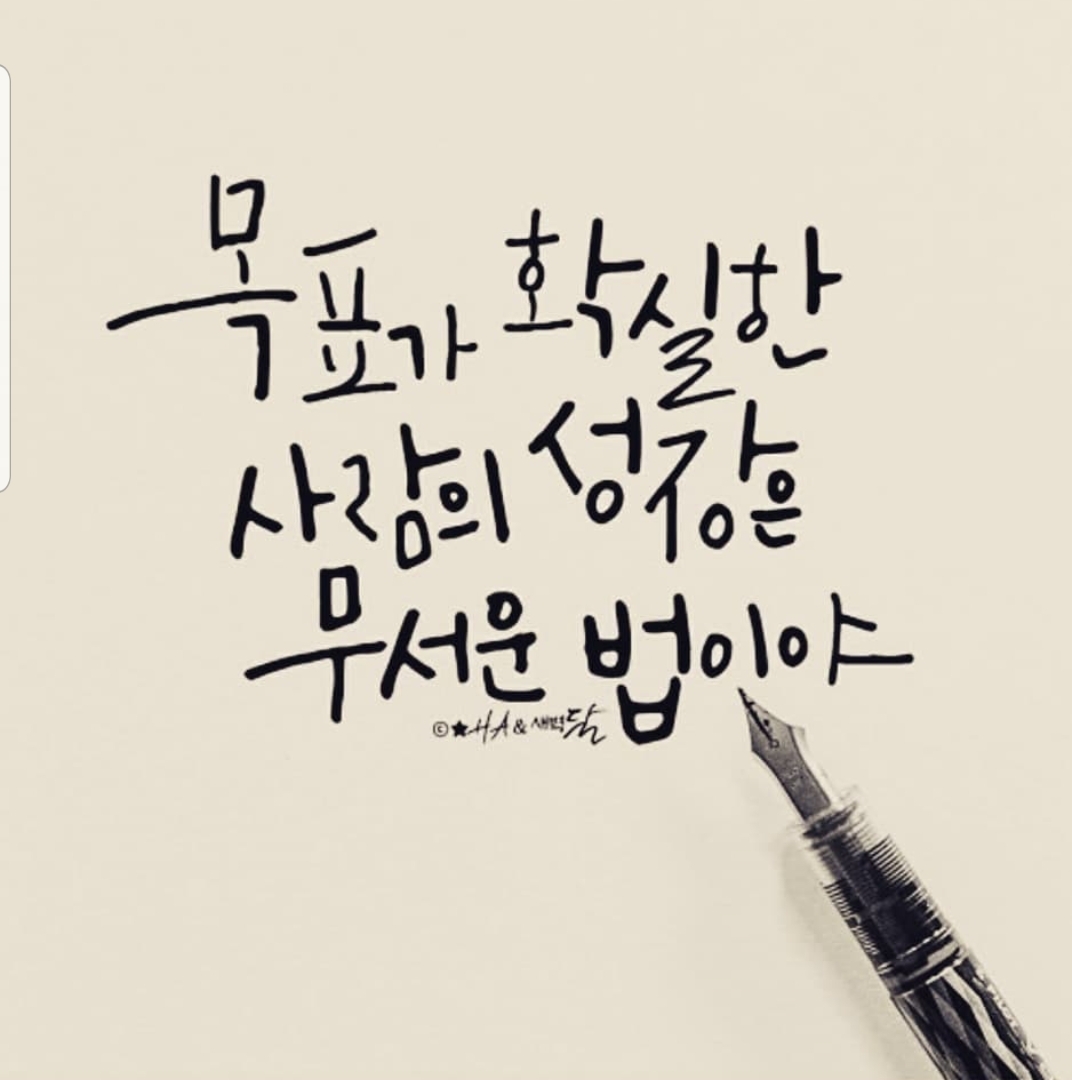 목표가 확실한
사람의 성장은
무서운 법이야
©★HA & 새벽달